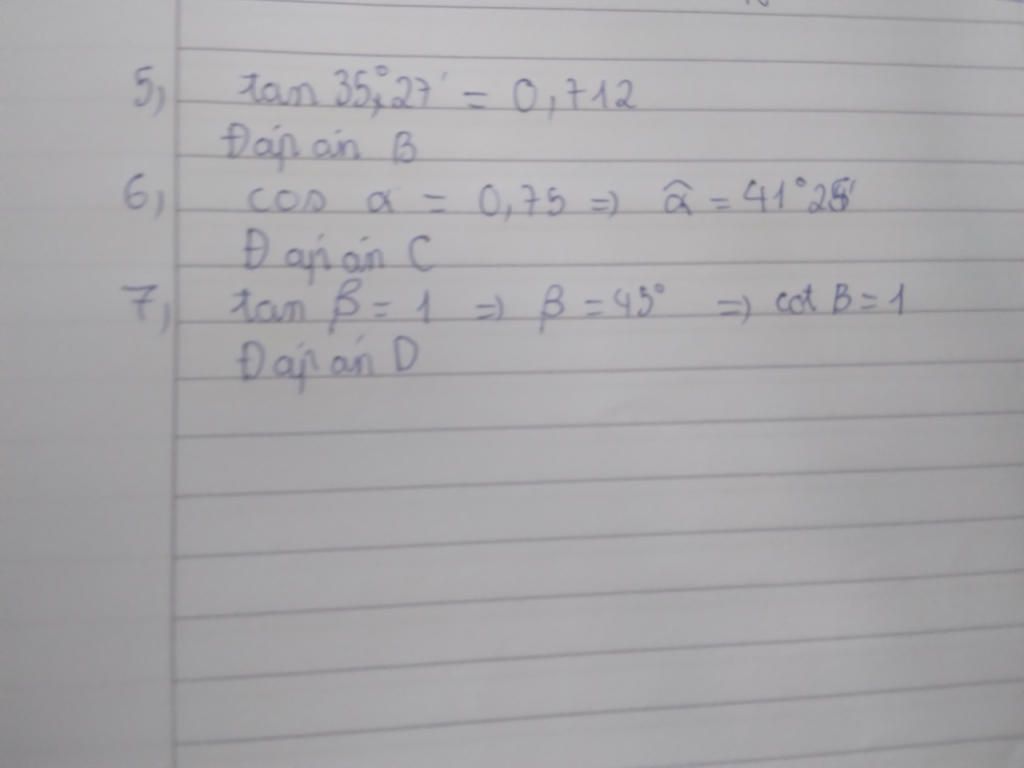 5, tan 35°27' = 0,712
Đáp án B
6, cos α = 0,75 => α̂ = 41°25'
Đáp án C
7, tan β = 1 => β = 45° => cot β = 1
Đáp án D